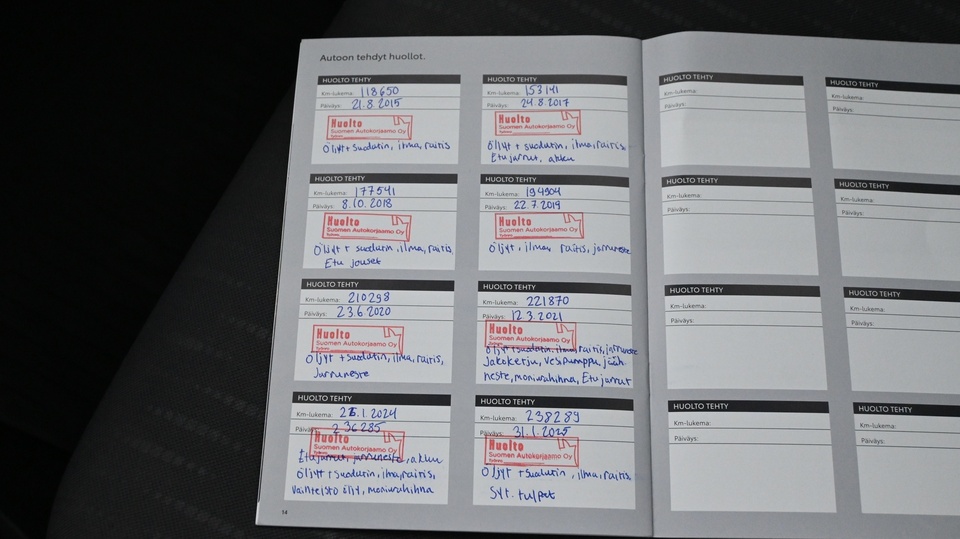 Autoon tehdyt huollot.
HUOLTO TEHTY
Km-lukema: 118650
Päiväys: 21.8.2015
Huolto
Suomen Autokorjaamo Oy
Öljyt + suodatin, ilma, raitis
HUOLTO TEHTY
Km-lukema: 153141
Päiväys: 24.8.2017
Huolto
Suomen Autokorjaamo Oy
Öljyt + suodatin, ilma, raitis
Etujarrut, akku
HUOLTO TEHTY
Km-lukema: 177541
Päiväys: 8.10.2018
Huolto
Suomen Autokorjaamo Oy
Öljyt + suodatin, ilma, raitis
Etu jouset
HUOLTO TEHTY
Km-lukema: 194904
Päiväys: 22.7.2019
Huolto
Suomen Autokorjaamo Oy
Öljyt, ilma, raitis, jarruneste
HUOLTO TEHTY
Km-lukema: 210298
Päiväys: 23.6.2020
Huolto
Suomen Autokorjaamo Oy
Öljyt + suodatin, ilma, raitis,
Jarruneste
HUOLTO TEHTY
Km-lukema: 221870
Päiväys: 12.3.2021
Huolto
Suomen Autokorjaamo Oy
Öljyt + suodatin, ilma, raitis, jarruneste
Jakokerju, vesipumppu, jääh
neste, moniurahihna, Etujarrut
HUOLTO TEHTY
Km-lukema: .1.2024
Päiväys: 236285
Huolto
Suomen Autokorjaamo Oy
Etujarrut, jarruneste, akku
Öljyt + suodatin, ilma, raitis,
Vaihteisto öljy, moniurahihna
HUOLTO TEHTY
Km-lukema: 238289
Päiväys: 31.1.2025
Huolto
Suomen Autokorjaamo Oy
Öljyt + suodatin, ilma, raitis,
Syt. tulpat
14
HUOLTO TEHTY
Km-lukema:
Päiväys:
HUOLTO TEHTY
Km-lukema:
Päiväys:
HUOLTO TEHTY
Km-lukema:
Päiväys:
HUOLTO TEHTY
Km-lukema:
Päiväys:
HUOLTO TEHTY
Km-lukema:
Päiväys:
HUOLTO TEHTY
Km-lukema:
Päiväys:
HUOLTO TEHTY
Km-lukema:
Päiväys:
HUOLTO TEHTY
Km-lukema:
Päiväys: